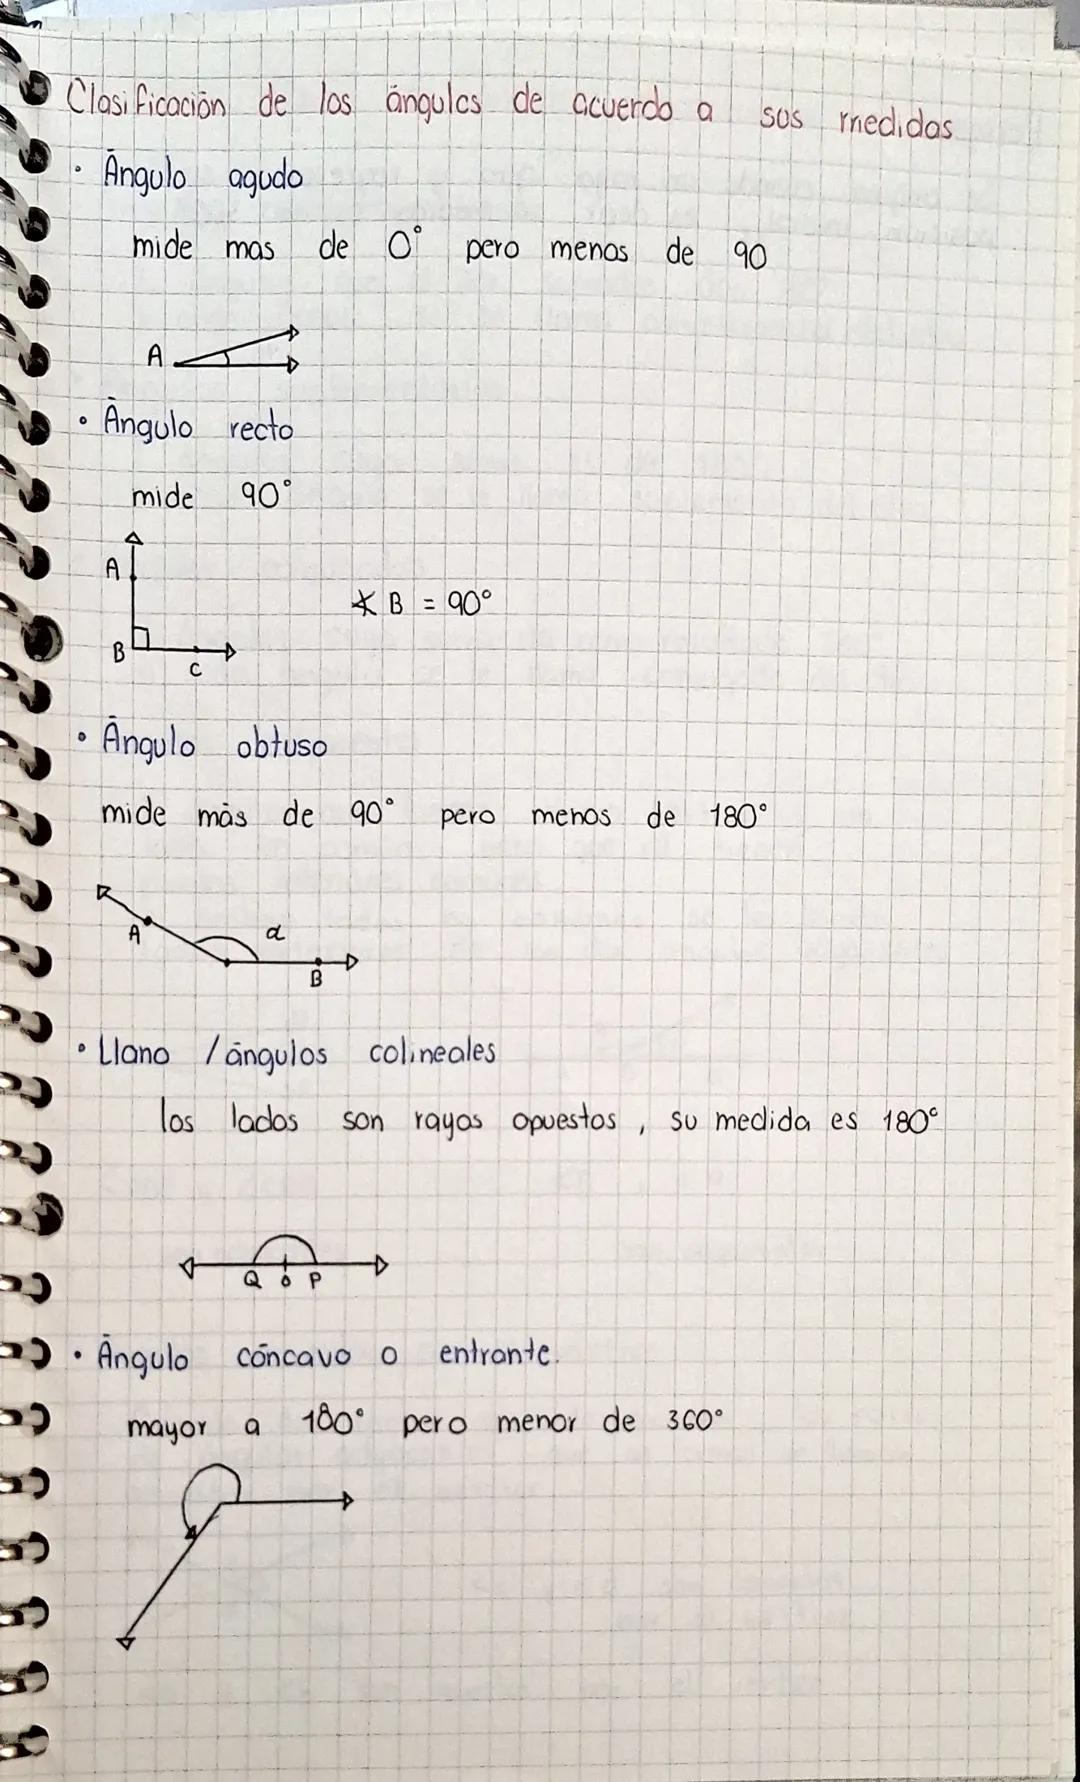 Clasificación de los ángulos de acuerdo a sus medidas
• Ángulo agudo
mide mas de 0° pero menos de 90
A
• Ángulo recto
mide 90°
A
∡ B = 90°
B
C
• Ángulo obtuso
mide más de 90° pero menos de 180°
A
α
B
• Llano / ángulos colineales
los lados son rayos opuestos, su medida es 180°
Q O P
• Ángulo cóncavo o entrante.
mayor a 180° pero menor de 360°